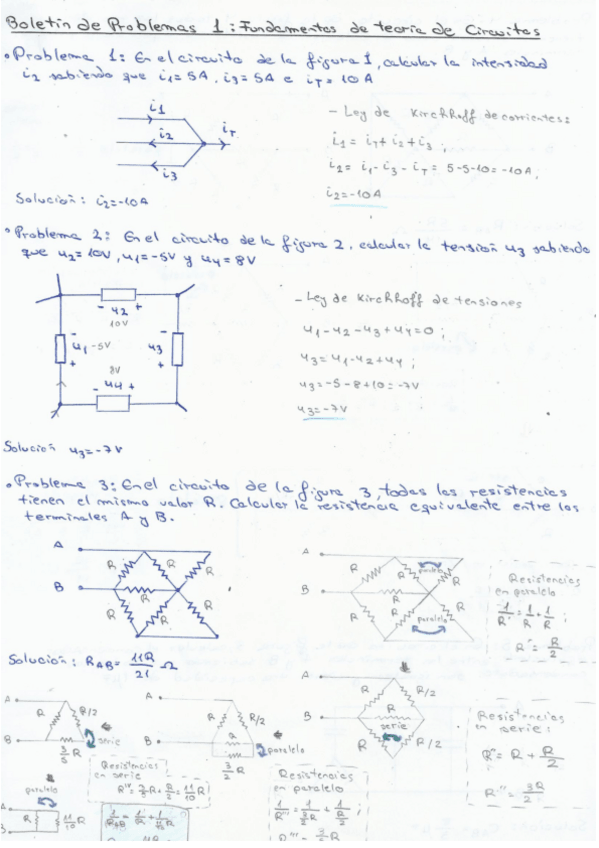 Boletín de Problemas 1: Fundamentos de teoría de Circuitos
• Problema 1: En el circuito de la figura 1, calcular la intensidad
i2 sabiendo que i1=5A, i3=5A e iT=10A
i1
i2
iT
i3
- Ley de Kirchhoff de corrientes:
i1 = iT + i2 + i3 ;
i2 = i1 - i3 - iT = 5-5-10 = -10A ;
i2=-10A
Solución: i2=-10A
• Problema 2: En el circuito de la figura 2, calcular la tensión u3 sabiendo
que u2=10V, u1=-5V y u4=8V
- u2 +
10V
- u1 -5V +
- u3 +
8V
- u4 +
- Ley de Kirchhoff de tensiones
u1-u2-u3+u4=0 ;
u3=u1-u2+u4 ;
u3=-5-8+10=-7V
u3=-7V
Solución u3=-7V
• Problema 3: En el circuito de la figura 3, todas las resistencias
tienen el mismo valor R. Calcular la resistencia equivalente entre los
terminales A y B.
A
R R R
B
R
R R
A
R R paralelo R
B
R
R R paralelo
Resistencias
en paralelo
1/R' = 1/R + 1/R ;
R' = R/2
Solución: RAB = 11R/21 Ω
A
R R/2
B
serie
3/5 R
A
R R/2
R
B
paralelo
3/2 R
A
R R/2
B
R
serie
R R/2
Resistencias
en serie:
R'' = R + R/2
R'' = 3R/2
Resistencias
en serie
R'''' = 3/5 R + R/2 = 11/10 R
Resistencias
en paralelo
1/R''' = 1/(3/2 R) + 1/R
R''' = 3/5 R
paralelo
A
R 11/10 R
B
1/RAB = 1/R + 1/(11/10 R)